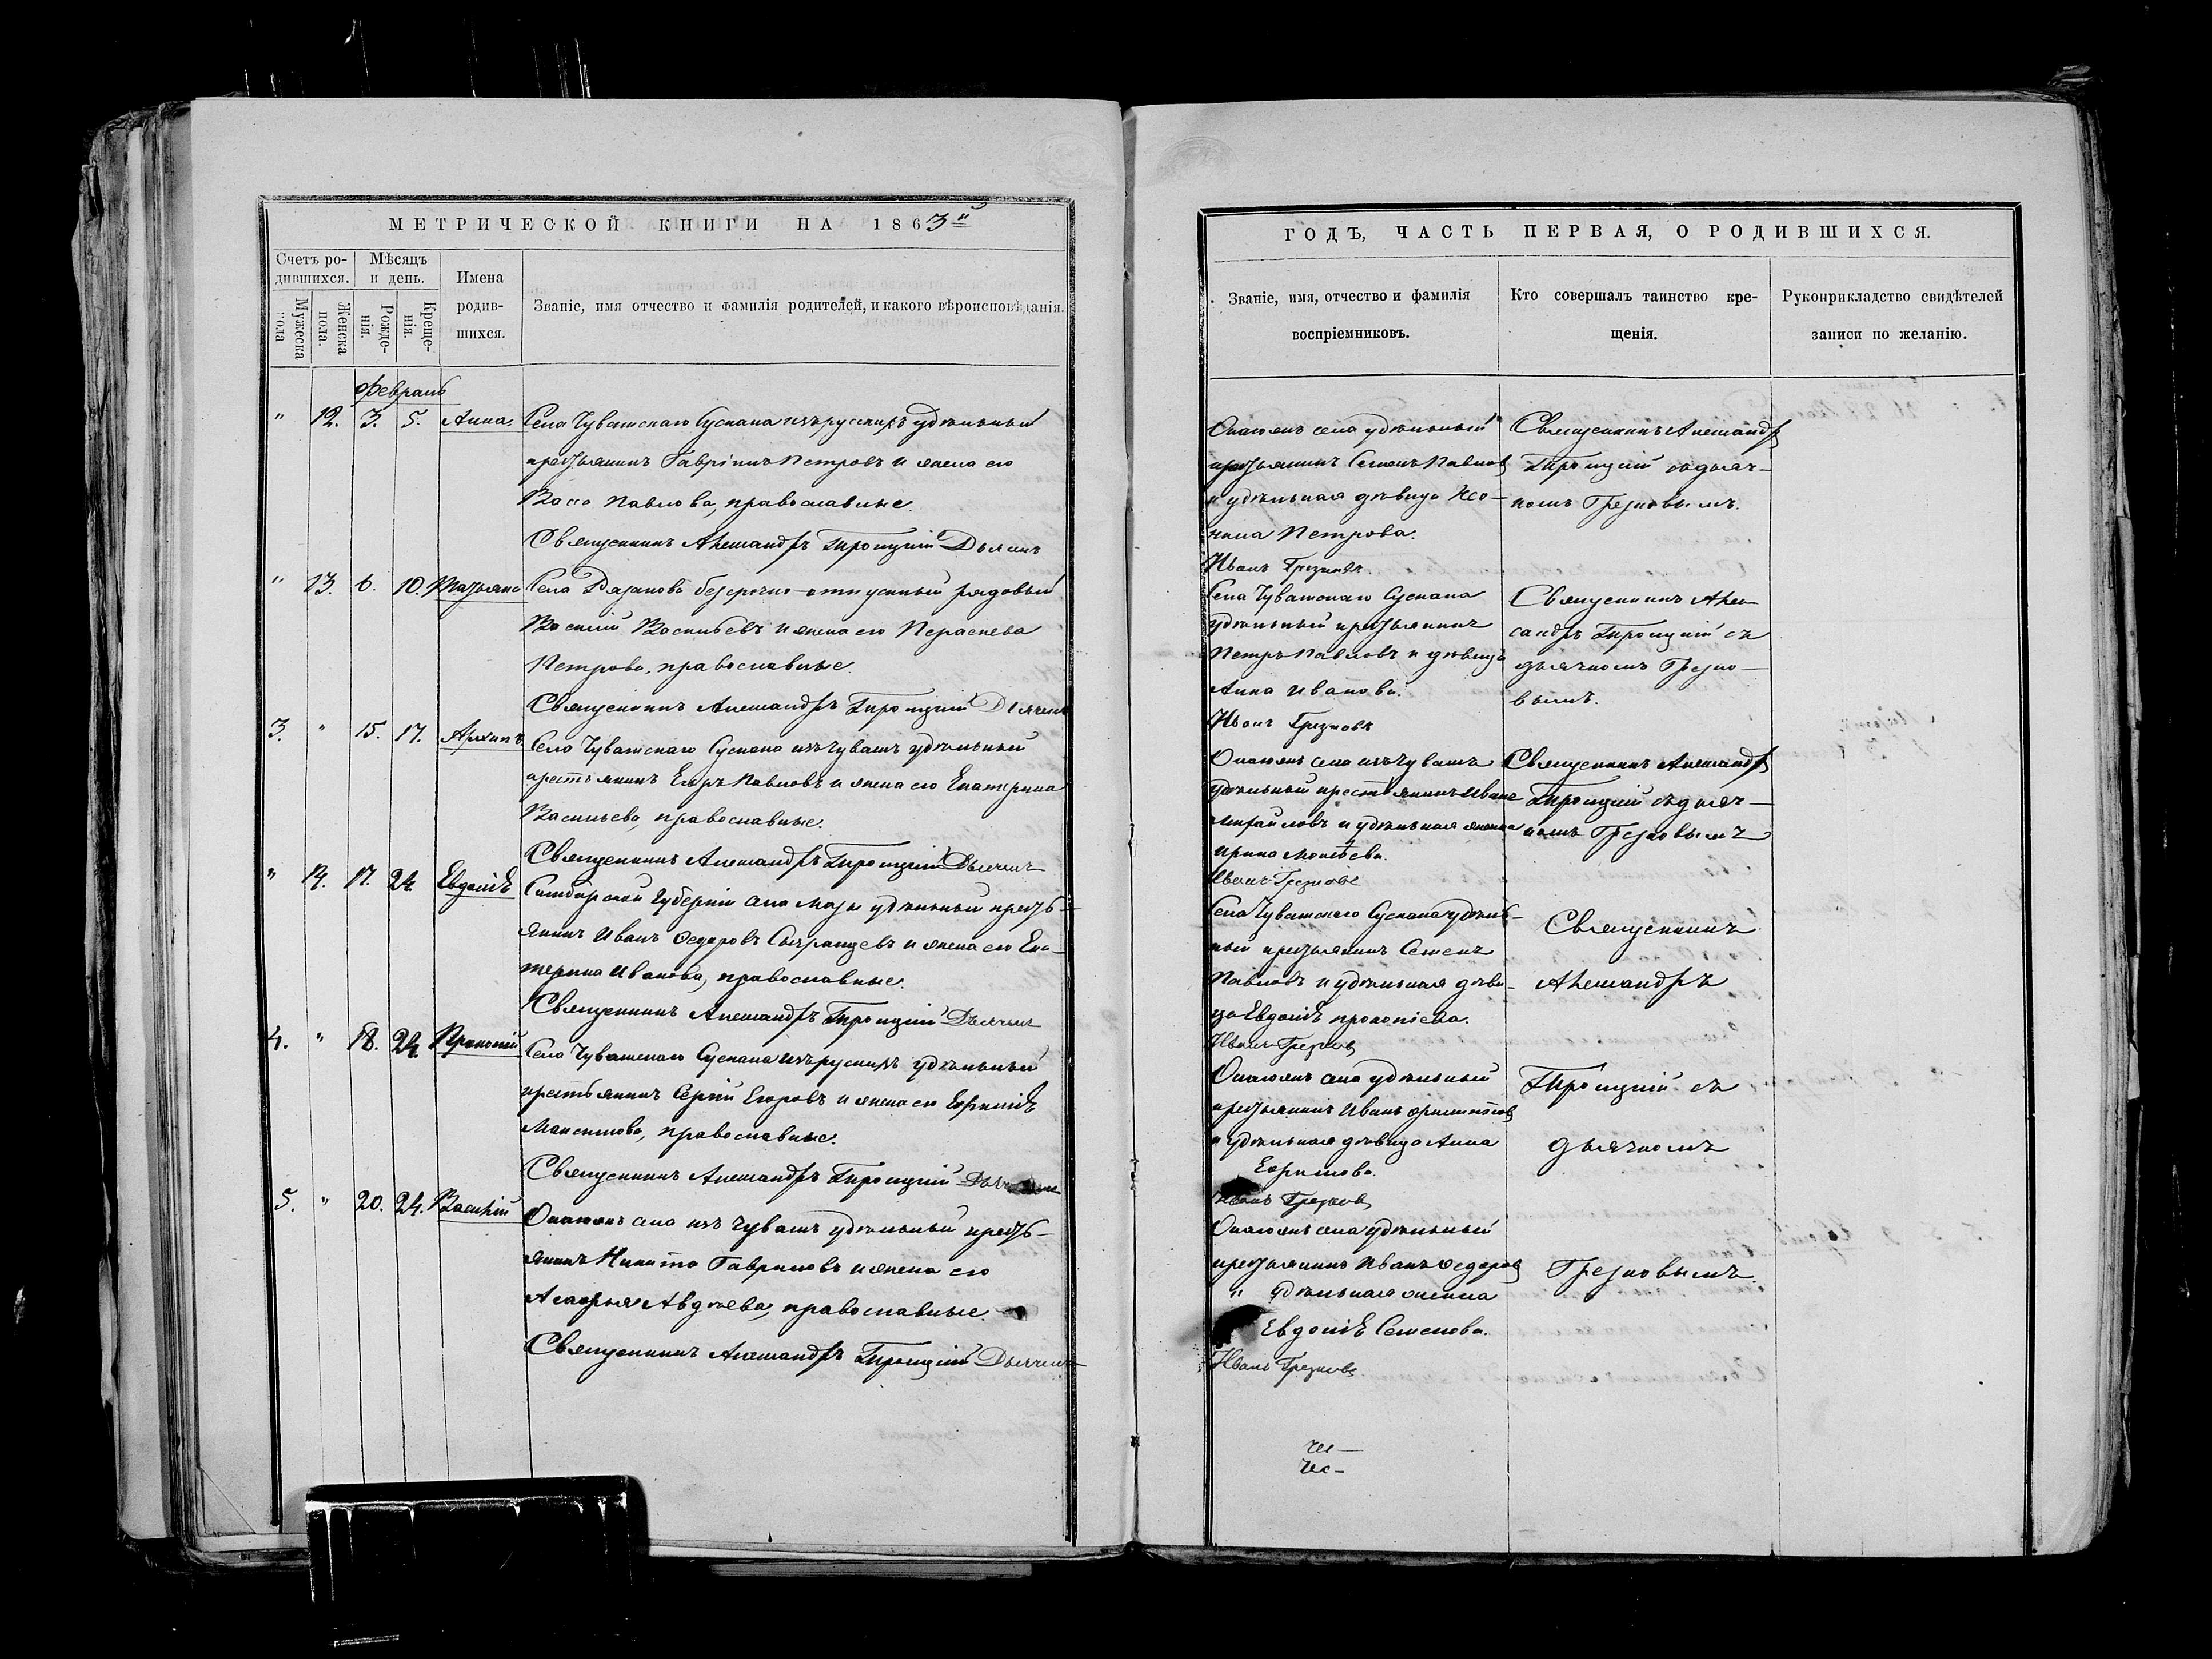 МЕТРИЧЕСКОЙ КНИГИ НА 1863й
Счетъ ро-
дившихся.
Мѣсяцъ
и день.
Имена
родив-
шихся.
Званіе, имя отчество и фамилія родителей, и какого вѣроисповѣданія.
Мужеска
пола
Женска
пола.
Рожде-
нія.
Креще-
нія.
Февраль
" 12. 3. 5. Анна. Села Чувашскаго Сускана изъ русскихъ удѣльный
крестьянинъ Гавріилъ Петровъ и жена его
Васса Павлова, православные.
Священникъ Александръ Троицкій Дьячекъ
" 13. 6. 10. Татьяна Села Рязанова безсрочно-отпускный рядовый
Василій Васильевъ и жена его Параскева
Петрова, православные.
Священникъ Александръ Троицкій Дьячекъ
3. " 15. 17. Архипъ Села Чувашскаго Сускана изъ чувашъ удѣльный
крестьянинъ Егоръ Павловъ и жена его Екатерина
Васильева, православные.
Священникъ Александръ Троицкій Дьячекъ
" 14. 17. 24 Евдокія Симбирской Губерніи села Мазы удѣльный кресть-
янинъ Иванъ Ѳедоровъ Сызранцевъ и жена его Ека-
терина Иванова, православные.
Священникъ Александръ Троицкій Дьячекъ
4. " 18. 24. Прокопій Села Чувашскаго Сускана изъ русскихъ удѣльный
крестьянинъ Сергій Егоровъ и жена его Евфимія
Максимова, православные.
Священникъ Александръ Троицкій
5. " 20. 24. Василій Онагожъ села изъ чувашъ удѣльный кресть-
янинъ Никита Гавриловъ и жена его
Агафья Авдѣева, православные.
Священникъ Александръ Троицкій Дьячекъ
ГОДЪ, ЧАСТЬ ПЕРВАЯ, О РОДИВШИХСЯ.
Званіе, имя, отчество и фамилія
воспріемниковъ.
Кто совершалъ таинство кре-
щенія.
Рукоприкладство свидѣтелей
записи по желанію.
Онагожъ села удѣльный
крестьянинъ Семенъ Павловъ
и удѣльная дѣвица Ксе-
нія Петрова.
Иванъ Грезновъ.
Священникъ Александръ
Троицкій съ дьяч-
комъ Грезновымъ.
Села Чувашскаго Сускана
удѣльный крестьянинъ
Петръ Павловъ и дѣвица
Анна Иванова.
Иванъ Грезновъ
Священникъ Алек-
сандръ Троицкій съ
дьячкомъ Грезно-
вымъ.
Онагожъ села изъ чувашъ
удѣльный крестьянинъ Иванъ
Михайловъ и удѣльная женка
Ирина Моисѣева.
Иванъ Грезновъ
Священникъ Александръ
Троицкій съ дьяч-
комъ Грезновымъ
Села Чувашскаго Сускана удѣль-
ный крестьянинъ Семенъ
Павловъ и удѣльная дѣви-
ца Евдокія Прокопіева.
Иванъ Грезновъ
Священникъ
Александръ
Онагожъ села удѣльный
крестьянинъ Иванъ
и удѣльная дѣвица Анна
Ефимова.
Иванъ Грезновъ
Троицкій съ
дьячкомъ
Онагожъ села удѣльный
крестьянинъ Иванъ Ѳедоровъ
и удѣльная женка
Евдокія Семенова.
Иванъ Грезновъ
Грезновымъ.